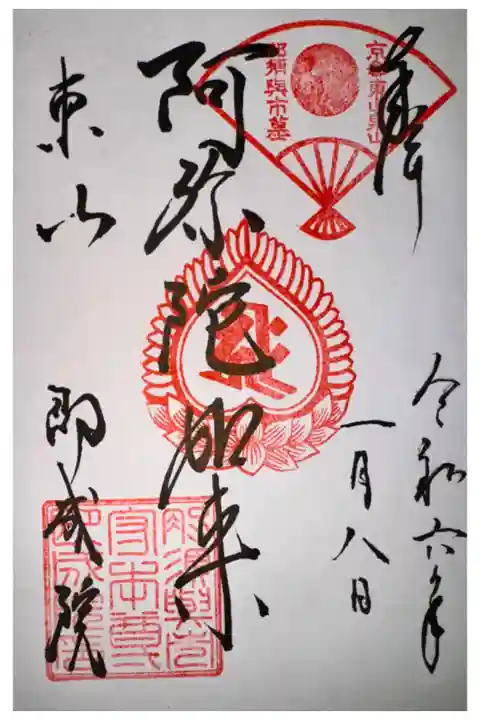 奉拝
令和六年
一月八日
京都東山泉山
那須與市墓
阿弥陀如来
東山
即成院
那須與市
守本尊